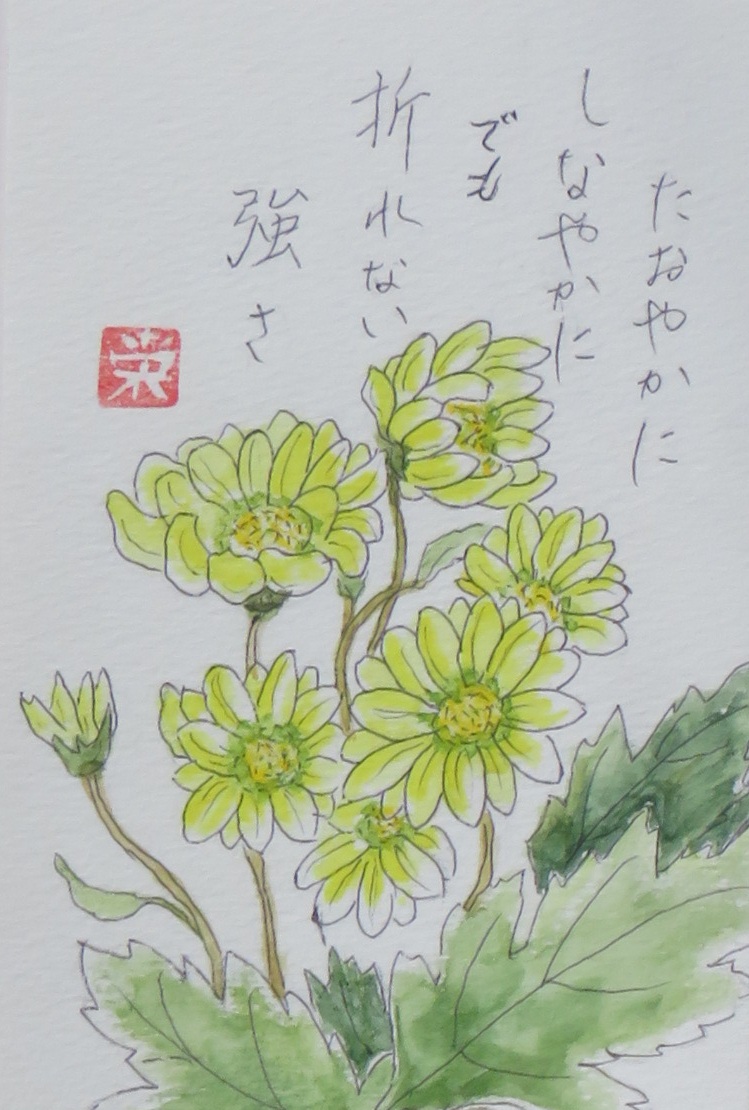 たおやかに
しなやかに
でも
折れない
強さ
栄